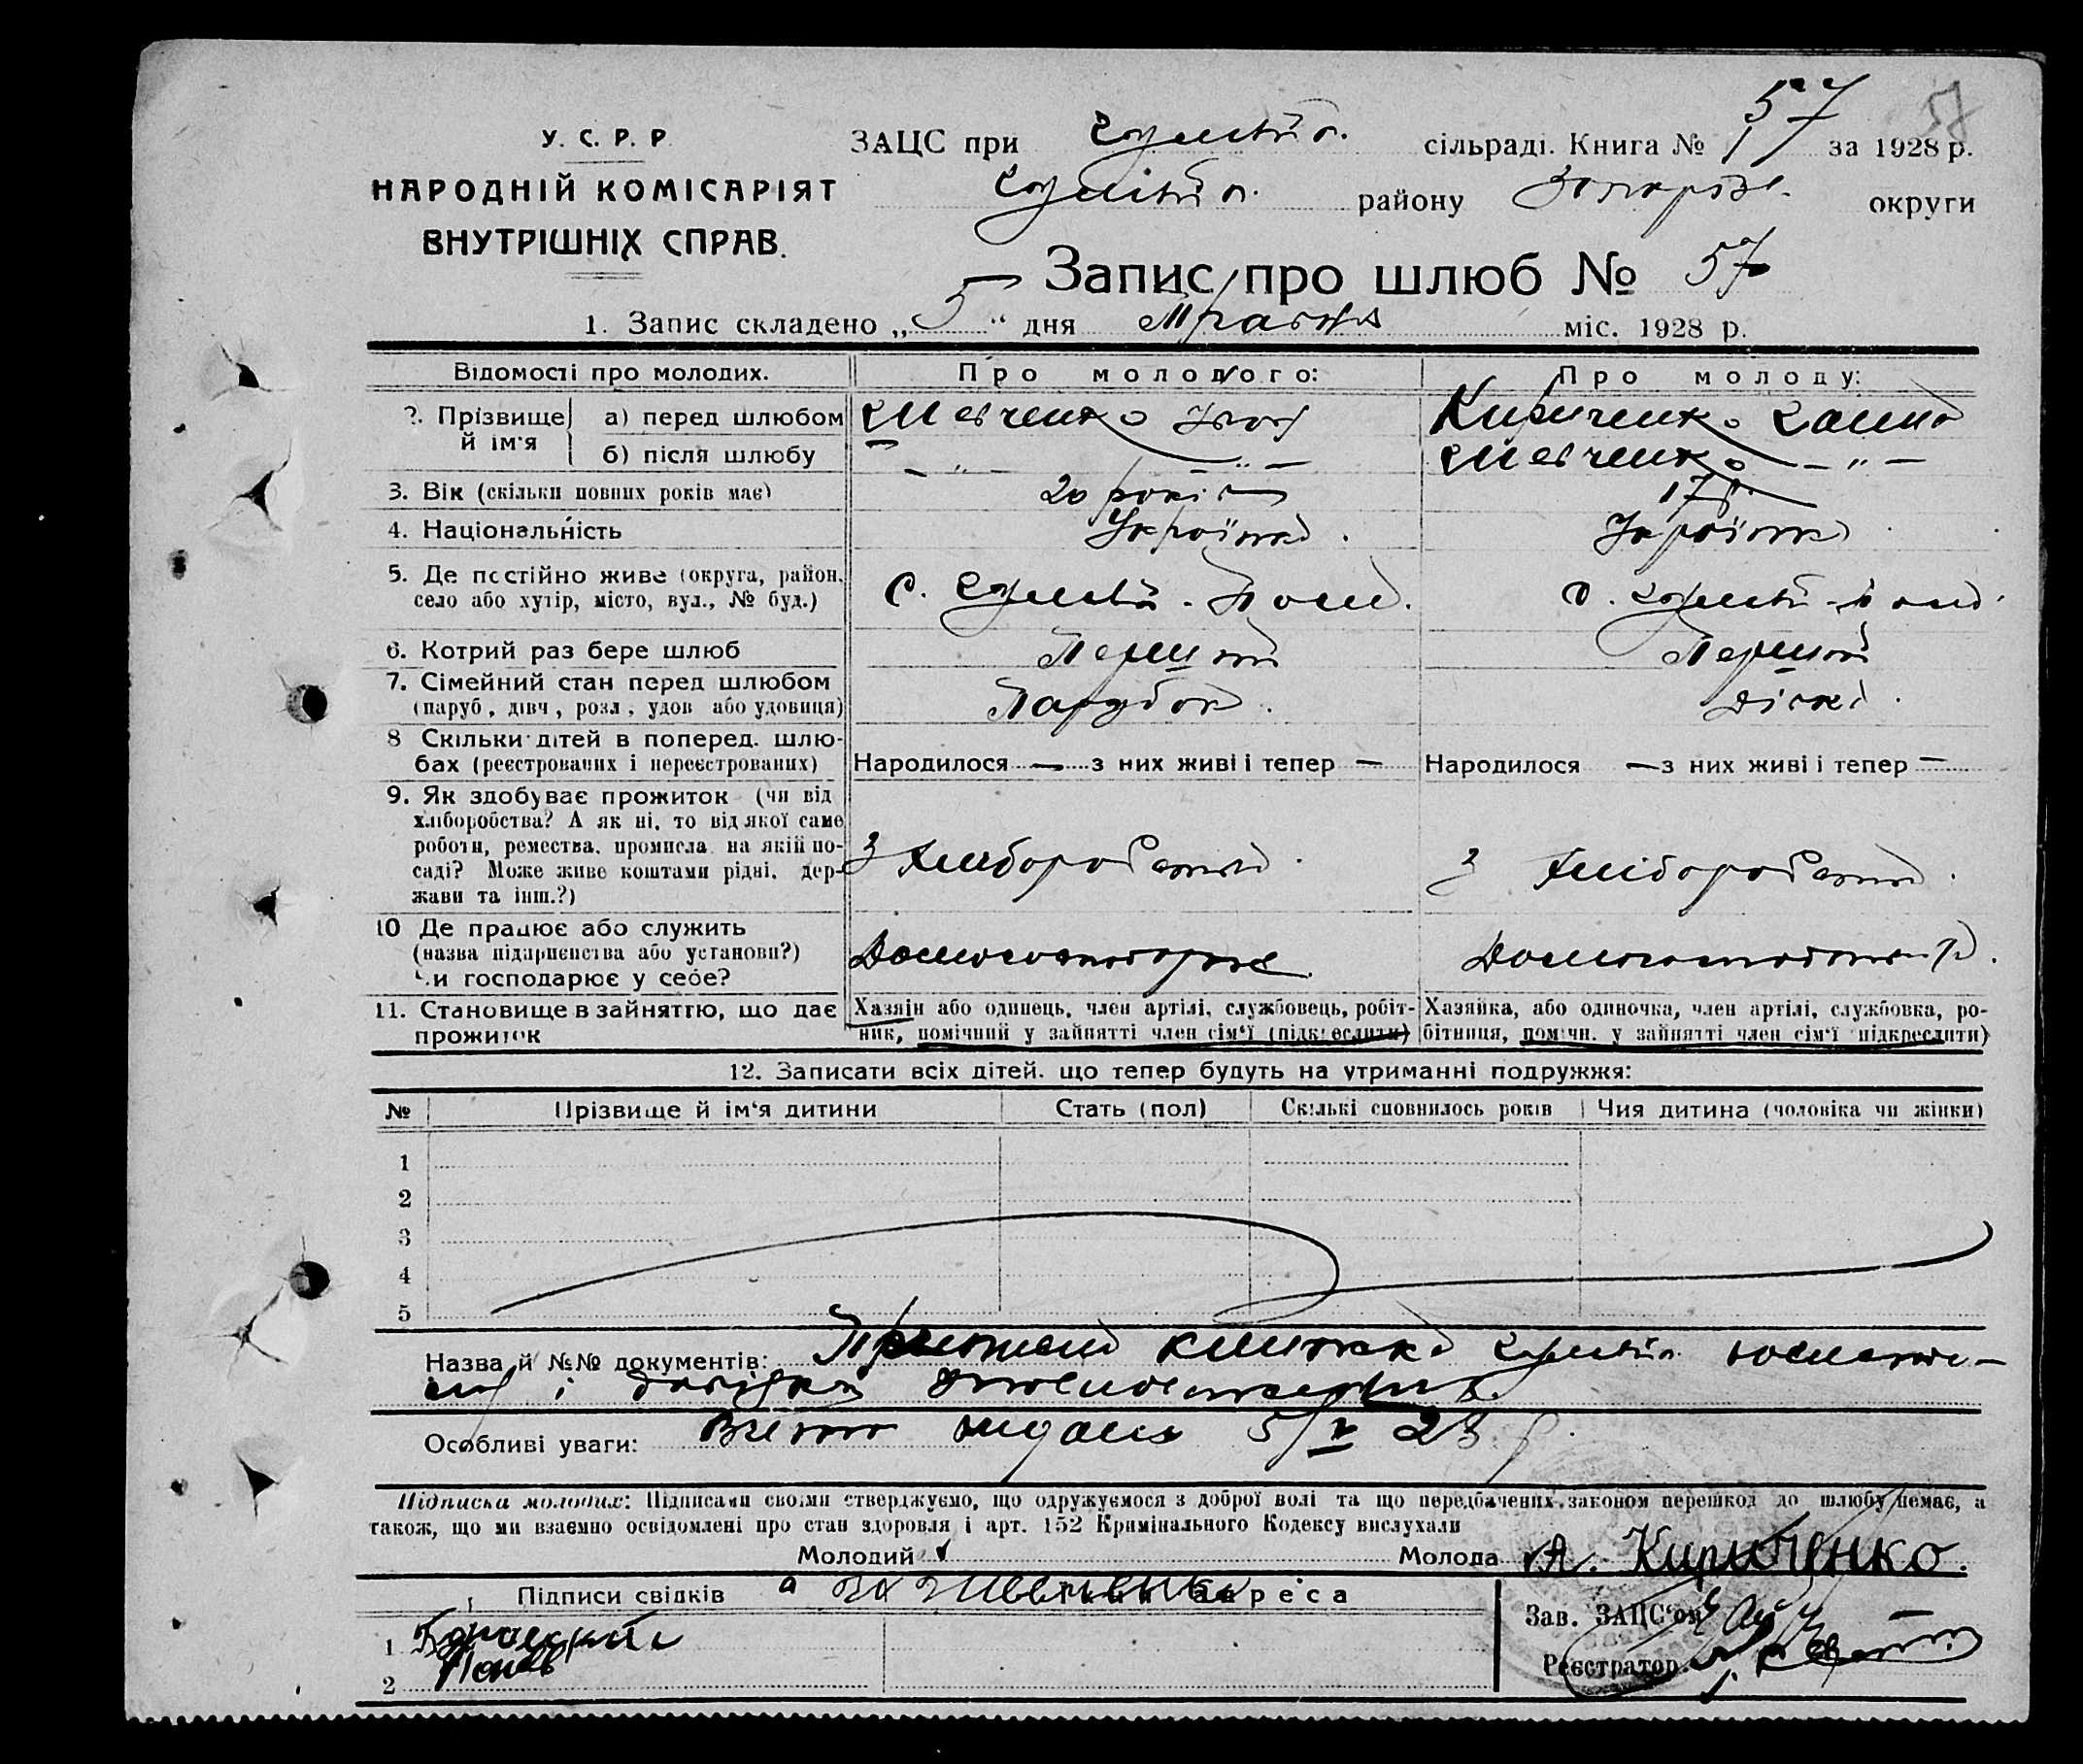 57
У. С. Р. Р
ЗАЦС при Гуляйп. сільраді. Книга № 57 за 1928 р.
НАРОДНІЙ КОМІСАРІЯТ
ВНУТРІШНІХ СПРАВ.
Гуляйп. району Запоріж. округи
Запис про шлюб № 57
1. Запис складено „5“ дня Травня міс. 1928 р.
Відомості про молодих. Про молодого: Про молоду:
2. Прізвище й ім'я а) перед шлюбом Шевченко Кириченко
б) після шлюбу — „ — — „ — Шевченко — „ —
3. Вік (скільки повних років має) 20 років 17 р.
4. Національність Українка
5. Де постійно живе (округа, район, с. Гуляй-Поле. с. Гуляй-Поле
село або хутір, місто, вул., № буд.)
6. Котрий раз бере шлюб Перший Перший
7. Сімейний стан перед шлюбом Парубок.
(паруб., дівч., розл., удов або удовиця)
8 Скільки дітей в поперед. шлю-
бах (реєстрованих і нереєстрованих) Народилося — з них живі і тепер — Народилося — з них живі і тепер —
9. Як здобуває прожиток (чи від
хліборобства? А як ні, то від якої саме
роботи, ремества, промисла, на якій по- З хліборобства. З хліборобства.
саді? Може живе коштами рідні, дер-
жави та інш.?)
10 Де працює або служить
(назва підприємства або установи?)
Чи господарює у себе?
11. Становище в зайняттю, що дає прожиток
Хазяін або одинець, член артілі, службовець, робіт-
ник, помічний у зайнятті член сім'ї (підкреслити)
Хазяйка, або одиночка, член артілі, службовка, ро-
бітниця, помічн. у зайнятті член сім'ї підкреслити)
12. Записати всіх дітей. що тепер будуть на утриманні подружжя:
№ Прізвище й ім'я дитини Стать (пол) Скількі сповнилось років Чия дитина (чоловіка чи жінки)
1
2
3
4
5
Назва й №№ документів: Гуляйп.
і довідка
Особливі уваги: Витяг видано 5/V 28 р.
Підписка молодих: Підписами своїми стверджуємо, що одружуємося з доброї волі та що передбачених законом перешкод до шлюбу немає, а
також, що ми взаємно освідомлені про стан здоровля і арт. 152 Кримінального Кодексу вислухали
Молодий Молода А. Кириченко.
Підписи свідків Їхня адреса
Зав. ЗАЦС'ом
1
Реєстратор
2